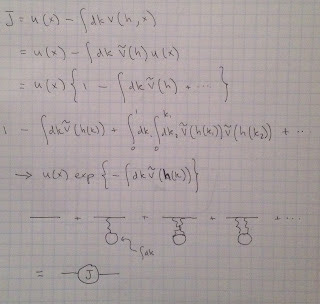 J = u(x) - ∫dk v(h,x)
= u(x) - ∫dk ṽ(h) u(x)
= u(x) { 1 - ∫dk ṽ(h) + ··· }
1 - ∫dk ṽ(h(k)) + ∫₀¹dk₁ ∫₀^k₁ dk₂ ṽ(h(k₁)) ṽ(h(k₂)) + ···
→ u(x) exp { - ∫dk ṽ(h(k)) }
+ + + + ···
∫dk
= J